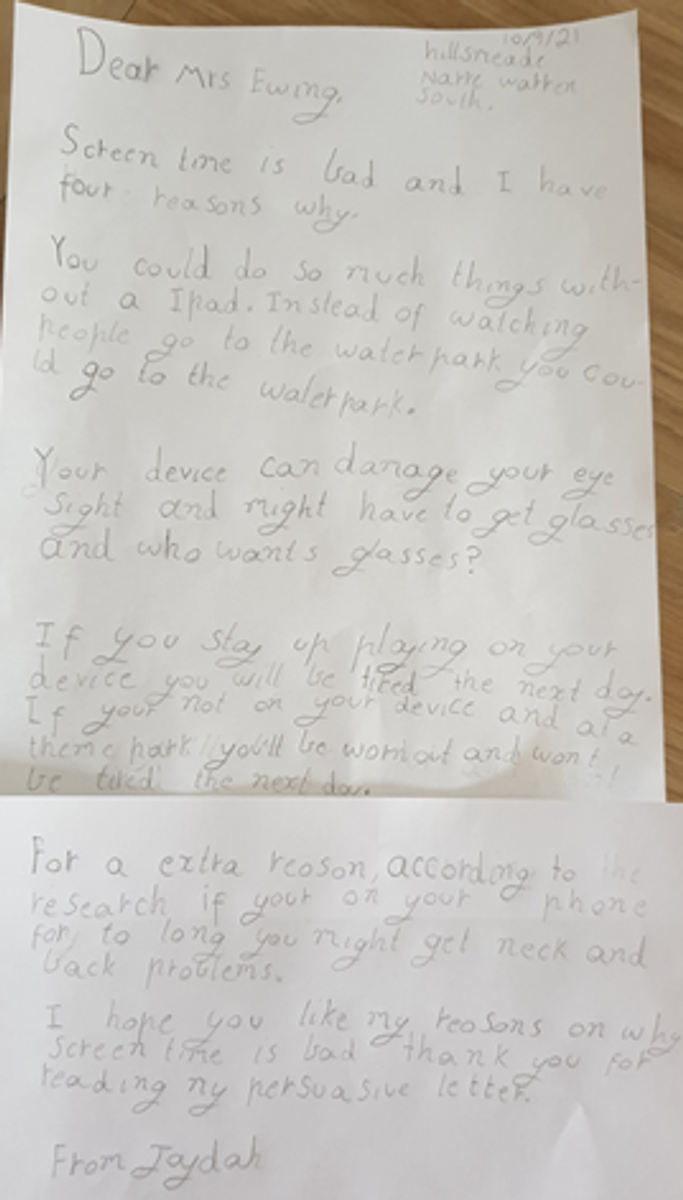 10/9/21
Dear Mrs Ewing.
hillsmeade
Narre warren
South.
Screen time is bad and I have
four reasons why.
You could do so much things with-
out a Ipad. Instead of watching
people go to the water park you cou-
ld go to the waterpark.
Your device can damage your eye
sight and might have to get glasses
and who wants glasses?
If you stay up playing on your
device you will be tired the next day.
If your not on your device and at a
theme park you'll be worn out and won't
be tired the next day.
For a extra reoson, according to the
research if your on your phone
for to long you might get neck and
back problems.
I hope you like my reasons on why
Screen time is bad thank you for
reading my persuasive letter.
From Jaydah